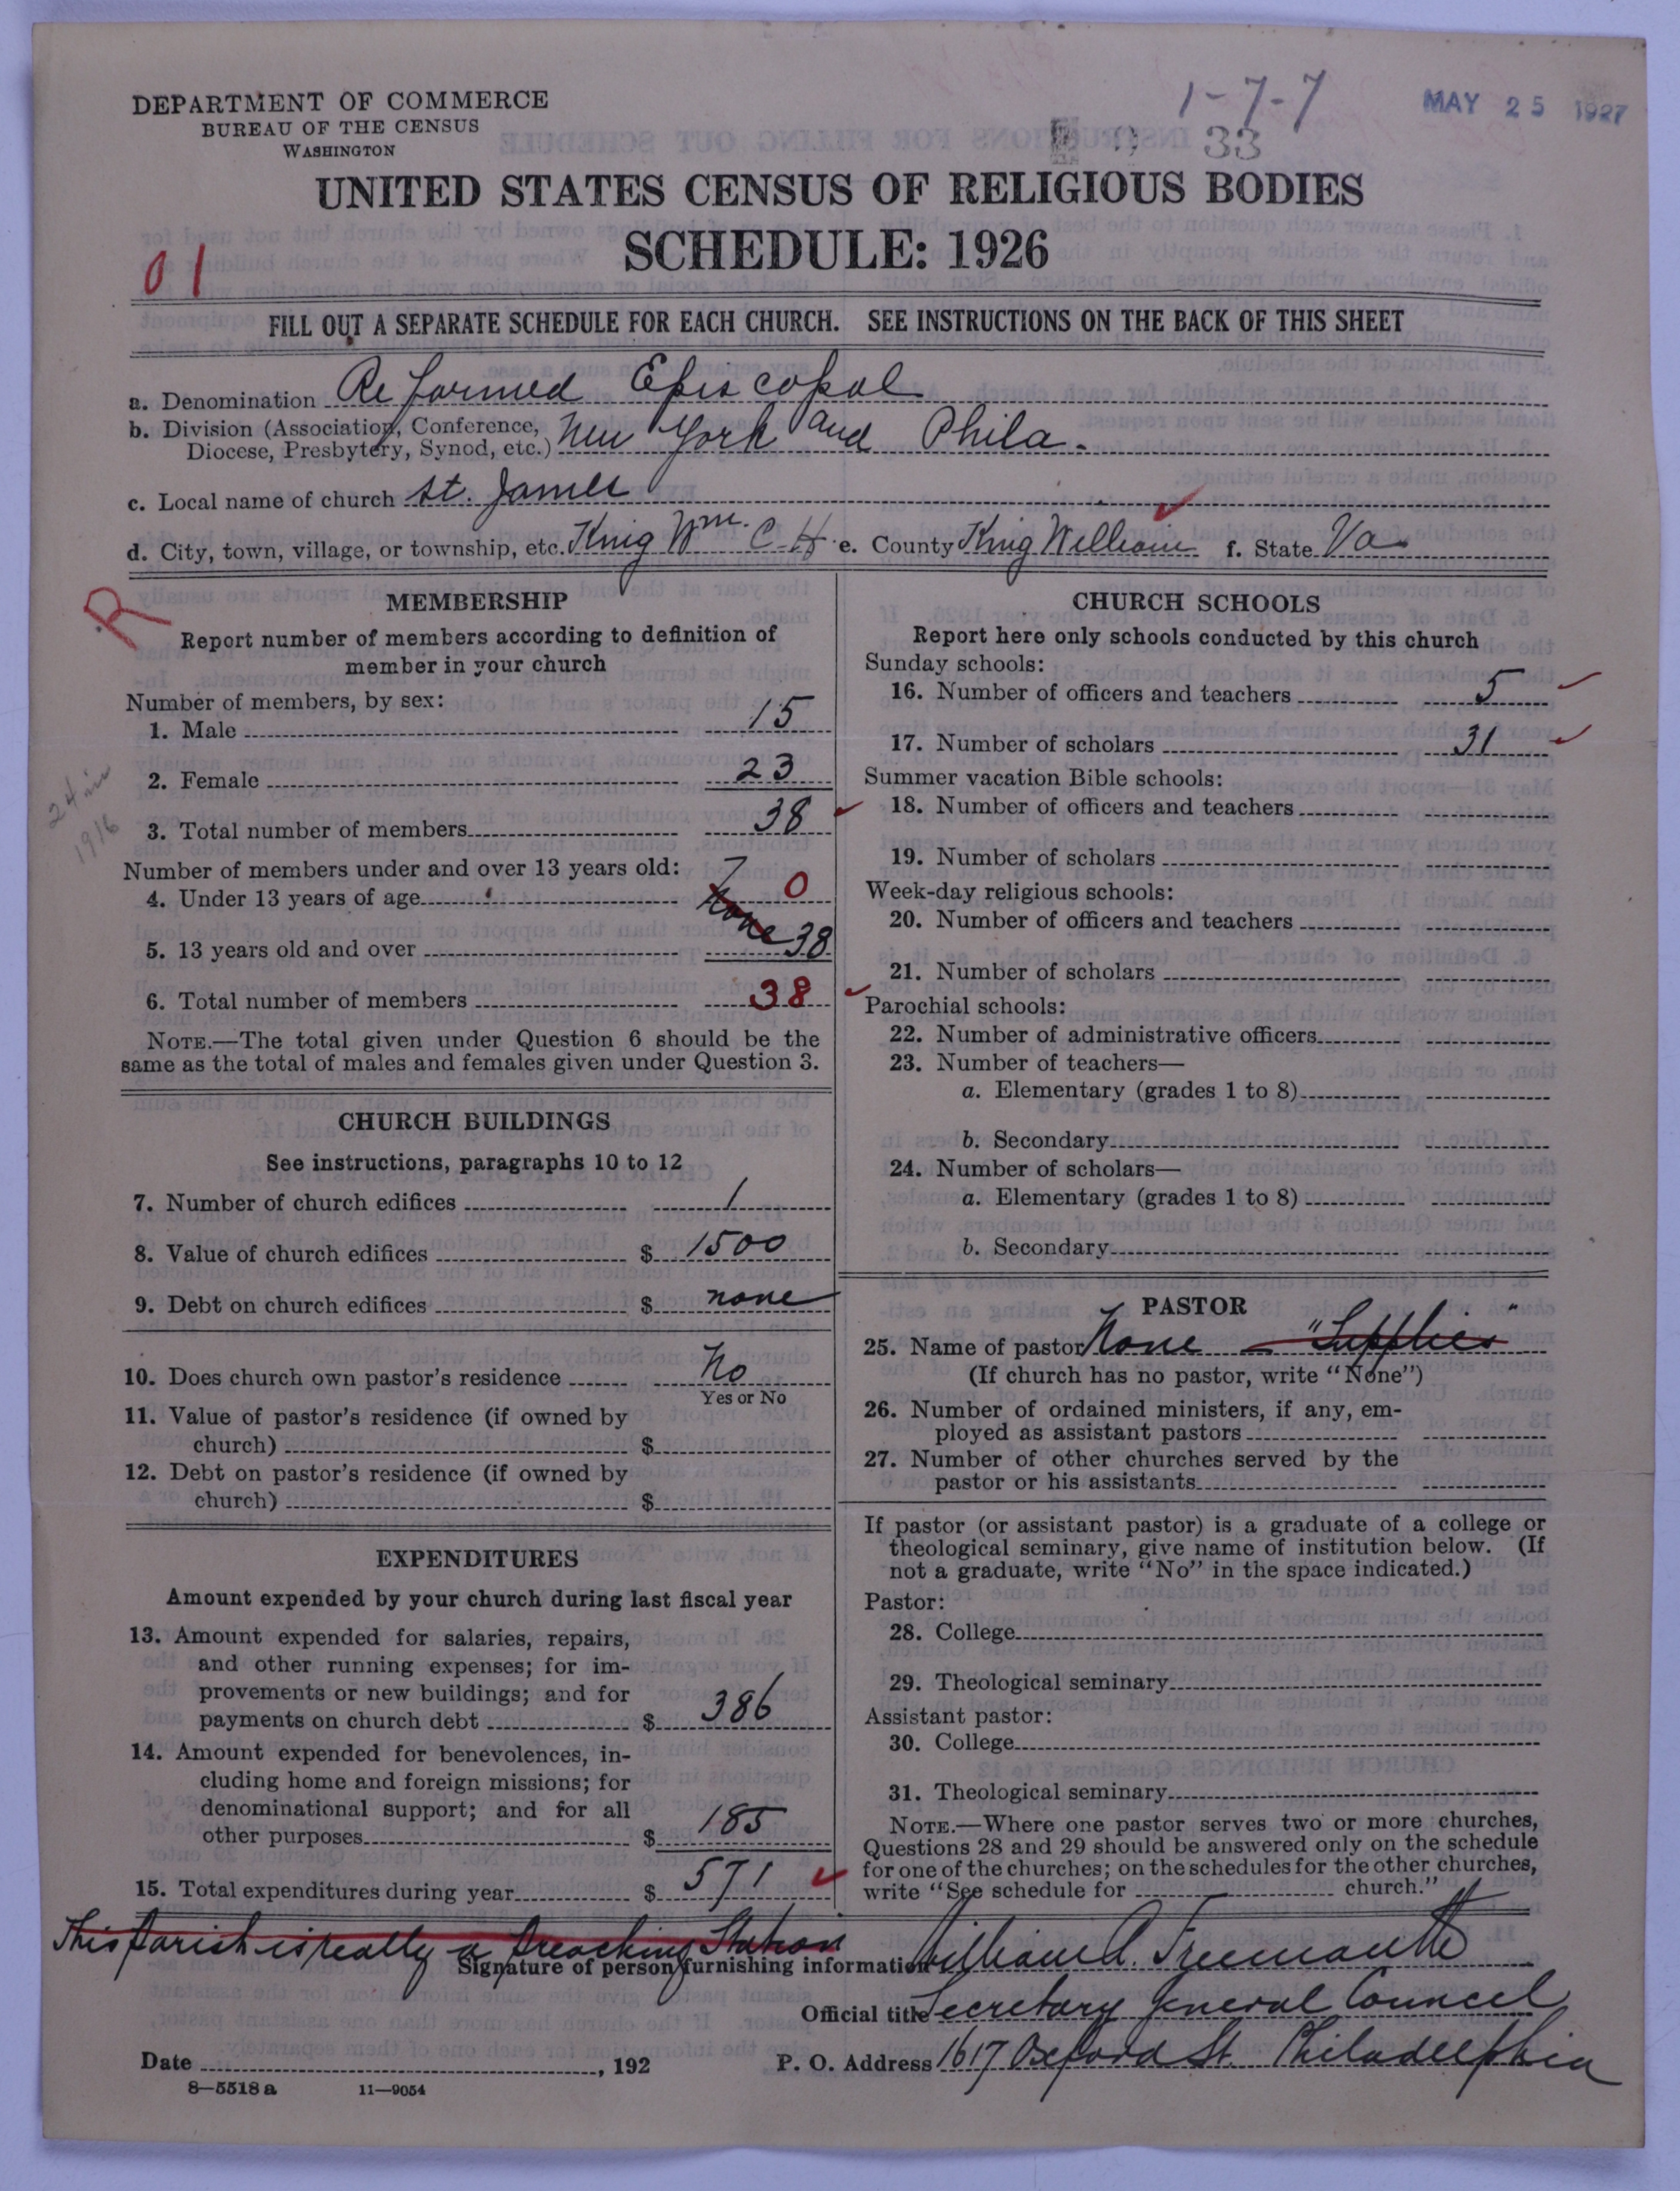 DEPARTMENT OF COMMERCE
BUREAU OF THE CENSUS
WASHINGTON
1-7-7
MAY 25 1927
33
UNITED STATES CENSUS OF RELIGIOUS BODIES
SCHEDULE: 1926
01
FILL OUT A SEPARATE SCHEDULE FOR EACH CHURCH. SEE INSTRUCTIONS ON THE BACK OF THIS SHEET
a. Denomination Reformed Episcopal
b. Division (Association, Conference, Diocese, Presbytery, Synod, etc.) New York and Phila.
c. Local name of church St. James
d. City, town, village, or township, etc. King Wm. C. H. e. County King William f. State Va
R
MEMBERSHIP
Report number of members according to definition of
member in your church
Number of members, by sex:
1. Male 15
2. Female 23
24 in
1916
3. Total number of members 38
Number of members under and over 13 years old:
4. Under 13 years of age None 0
5. 13 years old and over 38
6. Total number of members 38
NOTE.—The total given under Question 6 should be the
same as the total of males and females given under Question 3.
CHURCH BUILDINGS
See instructions, paragraphs 10 to 12
7. Number of church edifices 1
8. Value of church edifices $ 1500
9. Debt on church edifices $ none
10. Does church own pastor's residence No
Yes or No
11. Value of pastor's residence (if owned by
church) $
12. Debt on pastor's residence (if owned by
church) $
EXPENDITURES
Amount expended by your church during last fiscal year
13. Amount expended for salaries, repairs,
and other running expenses; for im-
provements or new buildings; and for
payments on church debt $ 386
14. Amount expended for benevolences, in-
cluding home and foreign missions; for
denominational support; and for all
other purposes $ 185
15. Total expenditures during year $ 571
CHURCH SCHOOLS
Report here only schools conducted by this church
Sunday schools:
16. Number of officers and teachers 5
17. Number of scholars 31
Summer vacation Bible schools:
18. Number of officers and teachers
19. Number of scholars
Week-day religious schools:
20. Number of officers and teachers
21. Number of scholars
Parochial schools:
22. Number of administrative officers
23. Number of teachers—
a. Elementary (grades 1 to 8)
b. Secondary
24. Number of scholars—
a. Elementary (grades 1 to 8)
b. Secondary
PASTOR
25. Name of pastor None — "Supplies"
(If church has no pastor, write "None")
26. Number of ordained ministers, if any, em-
ployed as assistant pastors
27. Number of other churches served by the
pastor or his assistants
If pastor (or assistant pastor) is a graduate of a college or
theological seminary, give name of institution below. (If
not a graduate, write "No" in the space indicated.)
Pastor:
28. College
29. Theological seminary
Assistant pastor:
30. College
31. Theological seminary
NOTE.—Where one pastor serves two or more churches,
Questions 28 and 29 should be answered only on the schedule
for one of the churches; on the schedules for the other churches,
write "See schedule for church."
This parish is really a Preaching Station
Signature of person furnishing information William A. Freemantle
Official title Secretary General Council
Date , 192
P. O. Address 1617 Oxford St. Philadelphia
8—5518 a 11—9054